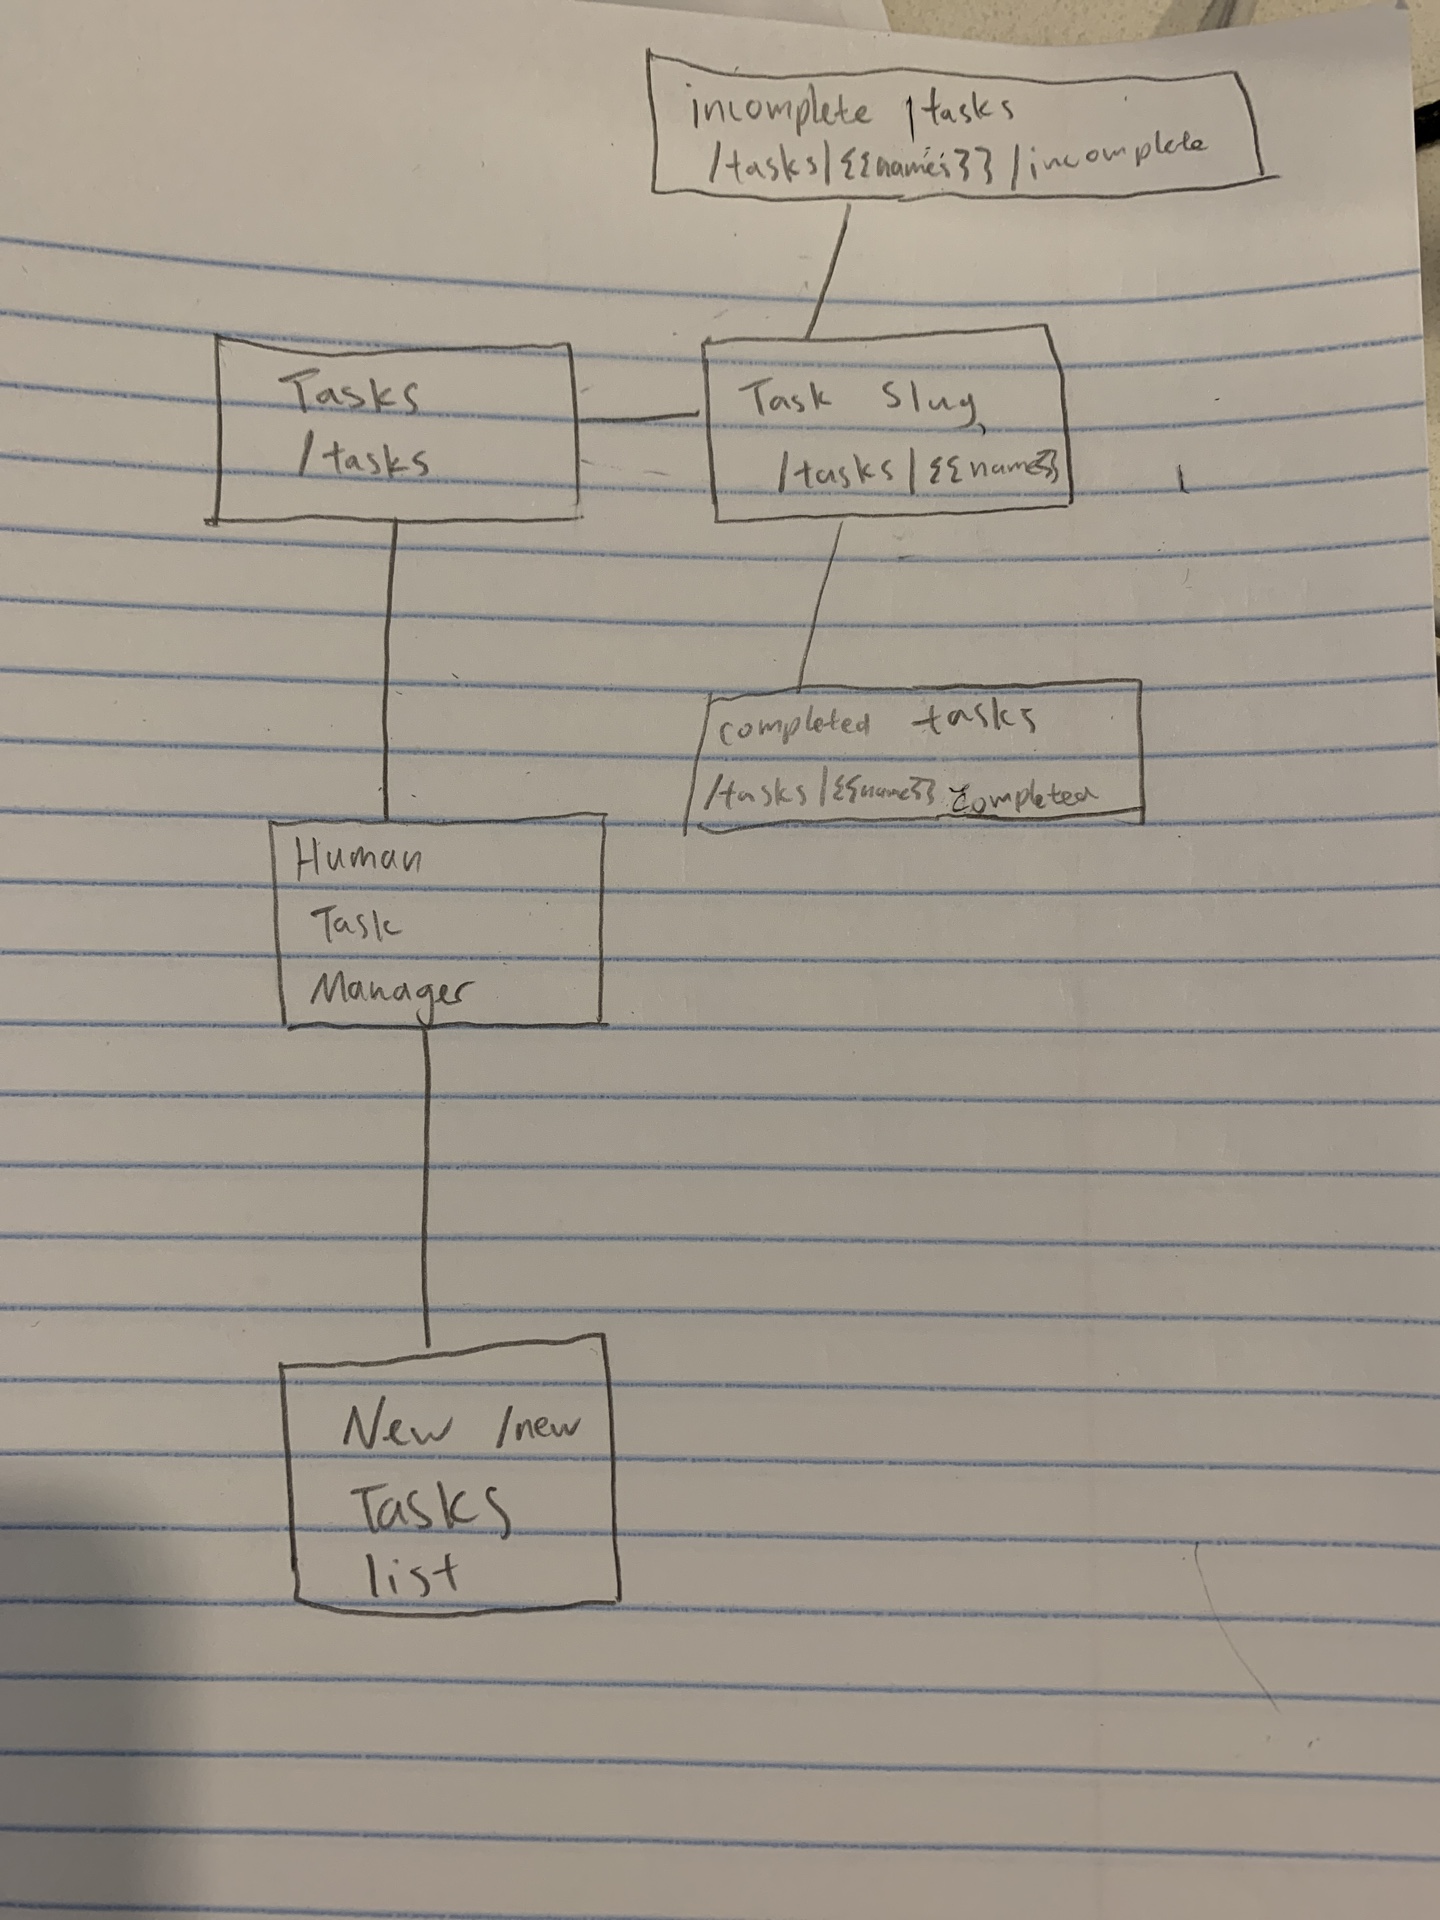 incomplete tasks
/tasks/{{name}}/incomplete
Tasks
/tasks
Task Slug
/tasks/{{name}}
completed tasks
/tasks/{{name}} completed
Human
Task
Manager
New /new
Tasks
list